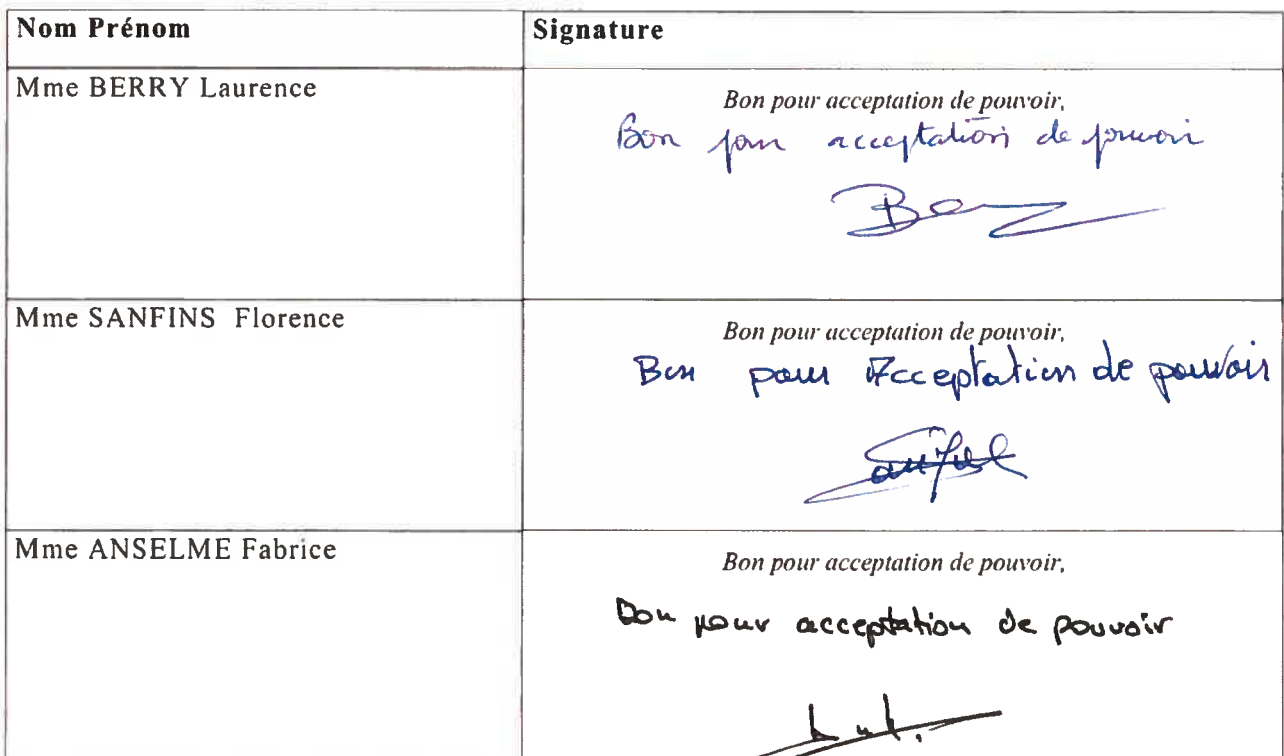 Nom Prénom
Signature
Mme BERRY Laurence
Bon pour acceptation de pouvoir,
Bon pour acceptation de pouvoir
Mme SANFINS Florence
Bon pour acceptation de pouvoir,
Bon pour Acceptation de pouvoir
Mme ANSELME Fabrice
Bon pour acceptation de pouvoir,
Bon pour acceptation de pouvoir